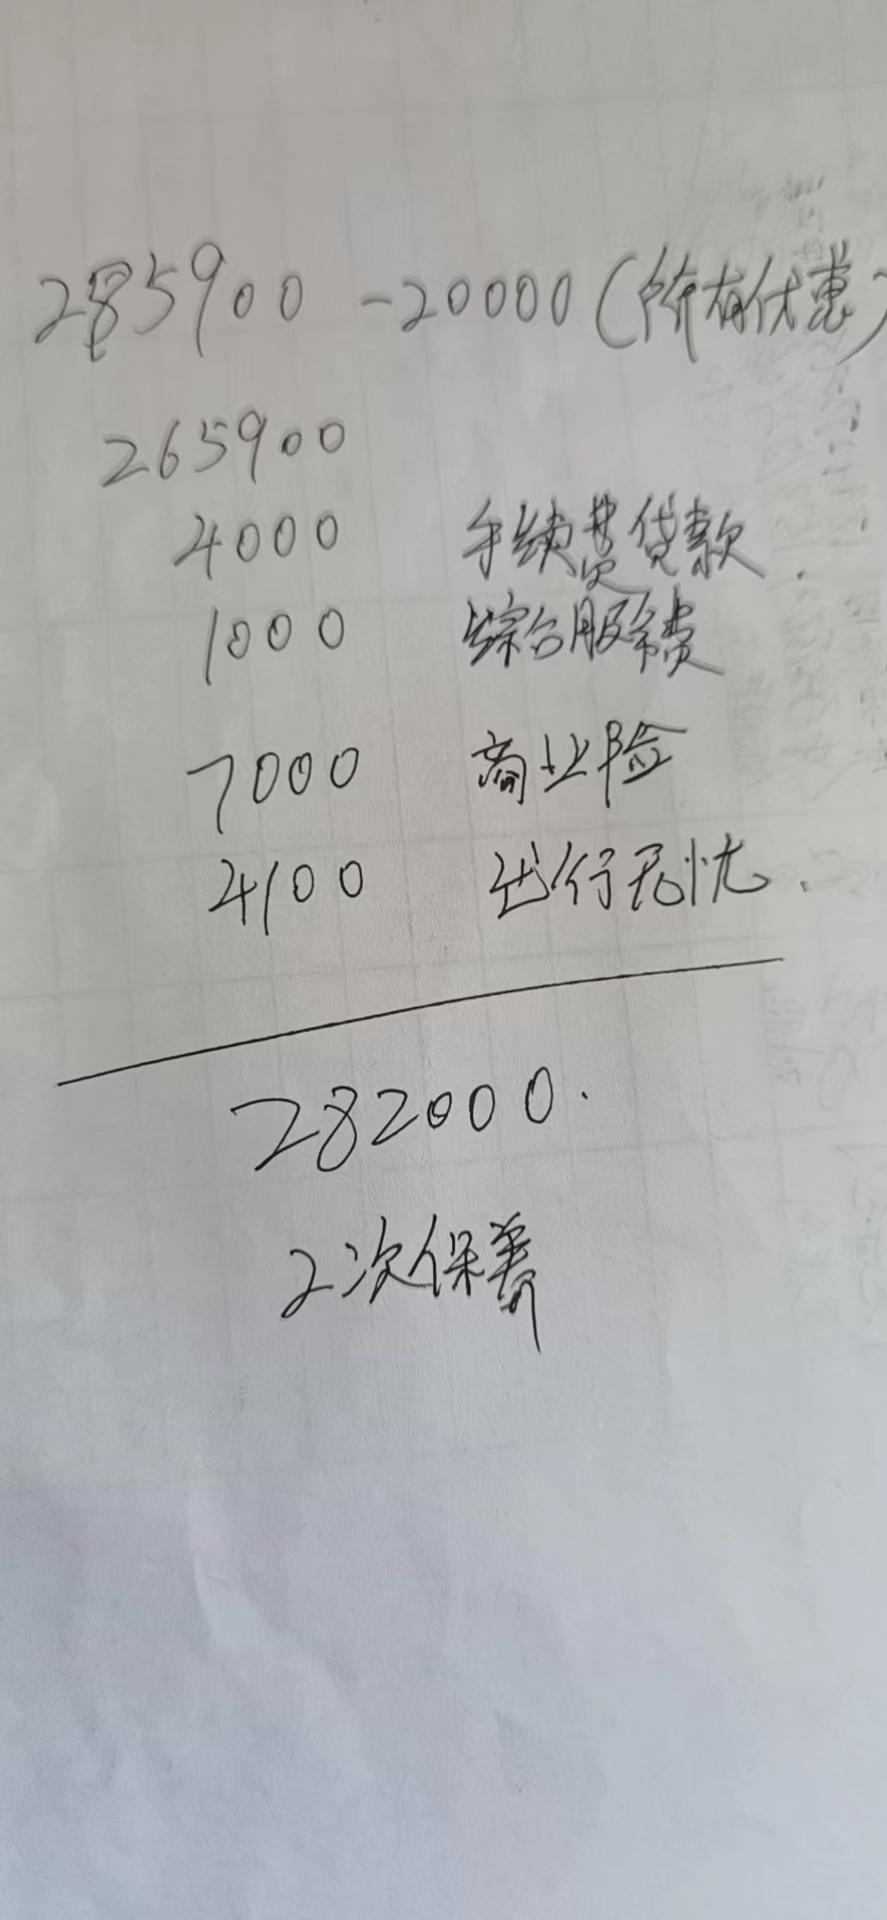 285900 -20000(所有优惠)
265900
4000 手续费贷款.
1000 综合服务费
7000 商业险
4100 出行无忧.
282000.
2次保养